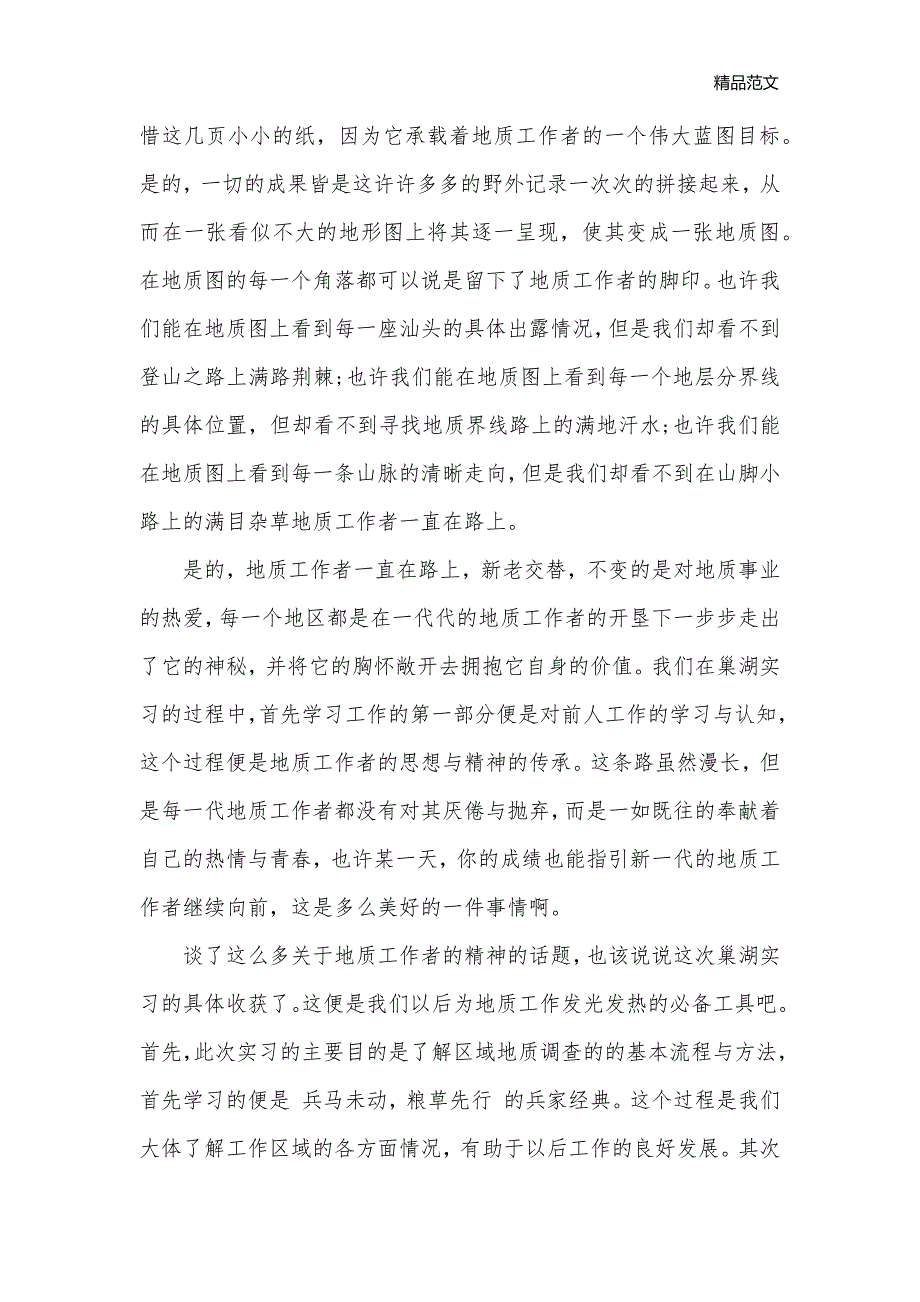 精品范文
惜这几页小小的纸，因为它承载着地质工作者的一个伟大蓝图目标。
是的，一切的成果皆是这许许多多的野外记录一次次的拼接起来，从
而在一张看似不大的地形图上将其逐一呈现，使其变成一张地质图。
在地质图的每一个角落都可以说是留下了地质工作者的脚印。也许我
们能在地质图上看到每一座汕头的具体出露情况，但是我们却看不到
登山之路上满路荆棘;也许我们能在地质图上看到每一个地层分界线
的具体位置，但却看不到寻找地质界线路上的满地汗水;也许我们能
在地质图上看到每一条山脉的清晰走向，但是我们却看不到在山脚小
路上的满目杂草地质工作者一直在路上。
是的，地质工作者一直在路上，新老交替，不变的是对地质事业
的热爱，每一个地区都是在一代代的地质工作者的开垦下一步步走出
了它的神秘，并将它的胸怀敞开去拥抱它自身的价值。我们在巢湖实
习的过程中，首先学习工作的第一部分便是对前人工作的学习与认知，
这个过程便是地质工作者的思想与精神的传承。这条路虽然漫长，但
是每一代地质工作者都没有对其厌倦与抛弃，而是一如既往的奉献着
自己的热情与青春，也许某一天，你的成绩也能指引新一代的地质工
作者继续向前，这是多么美好的一件事情啊。
谈了这么多关于地质工作者的精神的话题，也该说说这次巢湖实
习的具体收获了。这便是我们以后为地质工作发光发热的必备工具吧。
首先，此次实习的主要目的是了解区域地质调查的的基本流程与方法，
首先学习的便是 兵马未动，粮草先行 的兵家经典。这个过程是我们
大体了解工作区域的各方面情况，有助于以后工作的良好发展。其次